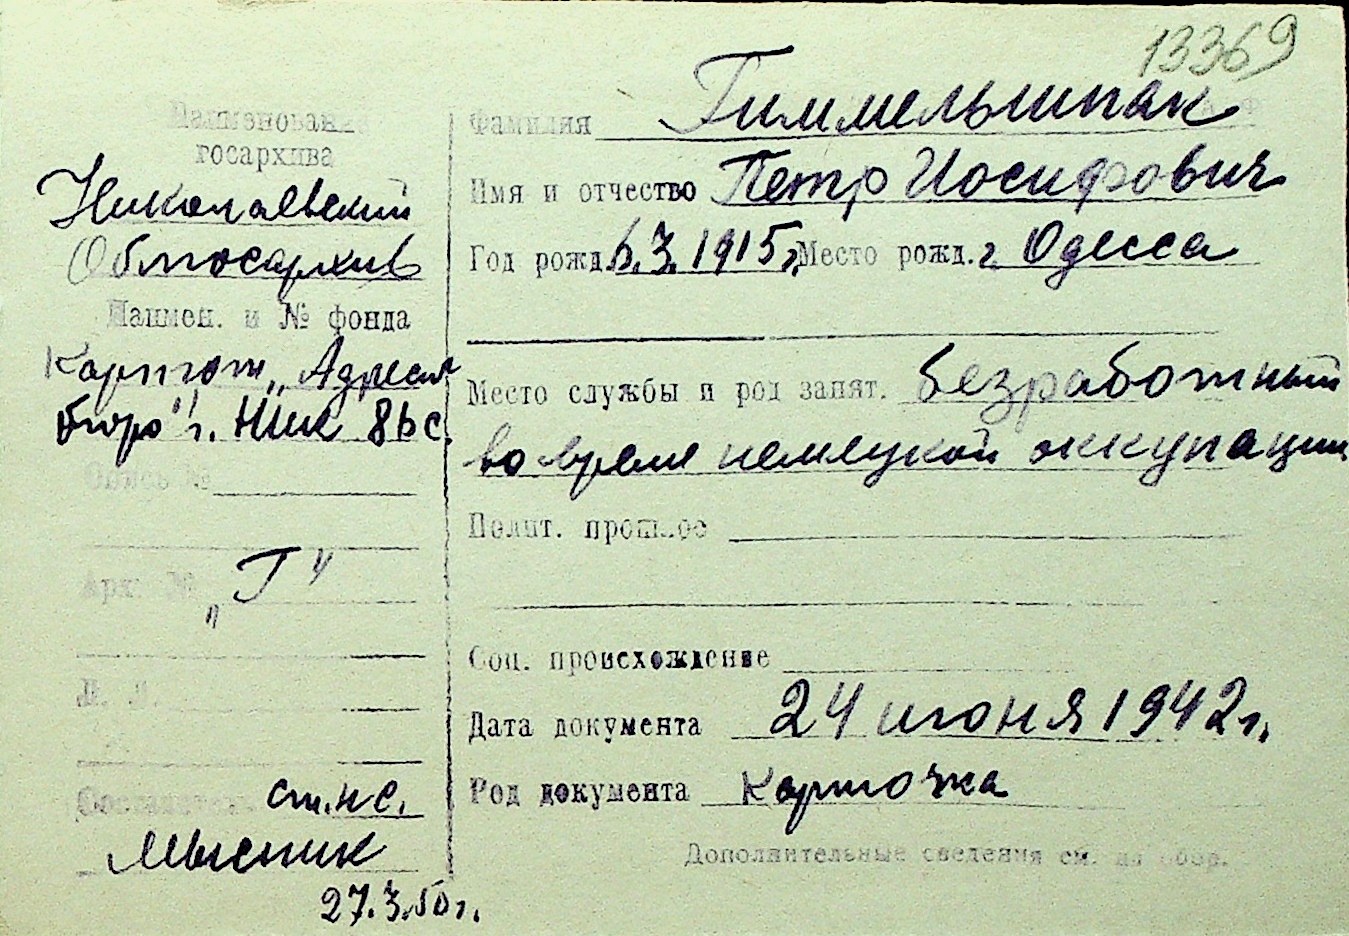 13369
Наименование
госархива
Николаевский
Облгосархив
Наимен. и № фонда
Картот. „Адресн
бюро" г. Ник
Опись №
Арх. №
„Г"
Л. Л.
Составител. ст. н. с.
Мысник
27.3.50 г.
Фамилия Гиммельшпак
Имя и отчество Петр Иосифович
Год рожд. 6.3.1915 г. Место рожд. г Одесса
Место службы и род занят. безработный
во время немецкой оккупации
Полит. прошлое
Соц. происхождение
Дата документа 24 июня 1942 г.
Род документа Карточка
Дополнительные сведения см. на обор.